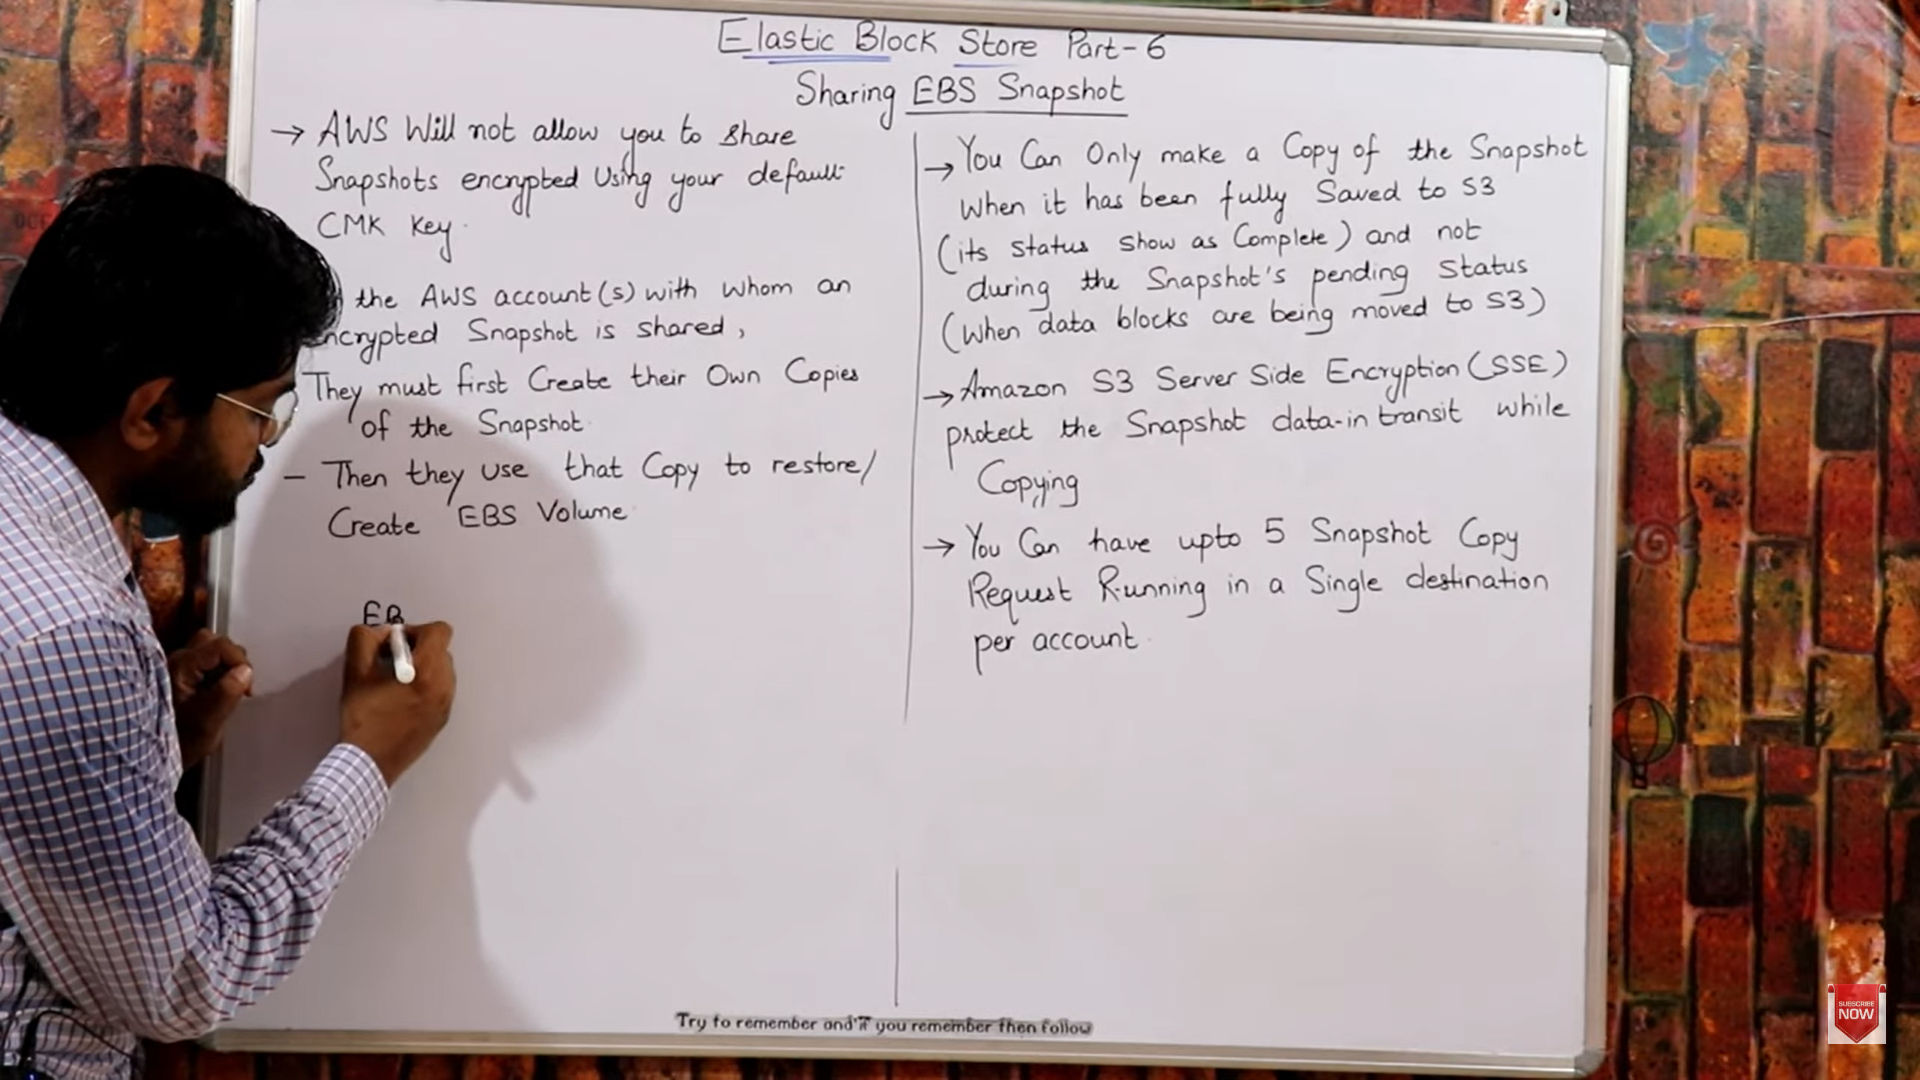 Elastic Block Store Part-6
Sharing EBS Snapshot
→ AWS Will not allow you to share
Snapshots encrypted Using your default
CMK Key.
the AWS account(s) with whom an
ncrypted Snapshot is shared,
They must first Create their Own Copies
of the Snapshot.
- Then they use that Copy to restore/
Create EBS Volume
EB
→ You Can Only make a Copy of the Snapshot
When it has been fully Saved to S3
(its status show as Complete) and not
during the Snapshot's pending Status
(When data blocks are being moved to S3)
→ Amazon S3 Server Side Encryption (SSE)
protect the Snapshot data-in transit while
Copying
→ You Can have upto 5 Snapshot Copy
Request Running in a Single destination
per account.
Try to remember and if you remember then follow
SUBSCRIBE
NOW